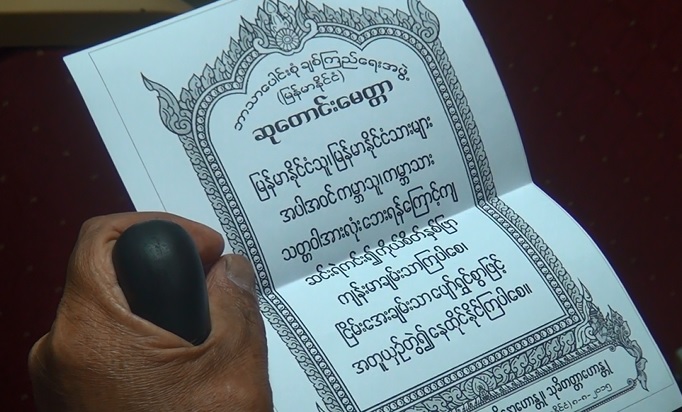 ဘာသာပေါင်းစုံ ချစ်ကြည်ရေးအဖွဲ့
(မြန်မာနိုင်ငံ)
ဆုတောင်းမေတ္တာ
မြန်မာနိုင်ငံသူ၊ မြန်မာနိုင်ငံသားများ
အပါအဝင် ကမ္ဘာသူ၊ ကမ္ဘာသား
သတ္တဝါအားလုံး ဘေးရန်ကြောင့်ကျ
ဆင်းရဲကင်း၍ ကိုယ်စိတ်နှစ်ဖြာ
ကျန်းမာချမ်းသာကြပါစေ၊
ငြိမ်းအေးချမ်းသာ ပျော်ရွှင်စွာဖြင့်
အတူယှဉ်တွဲ၍ နေထိုင်နိုင်ကြပါစေ။